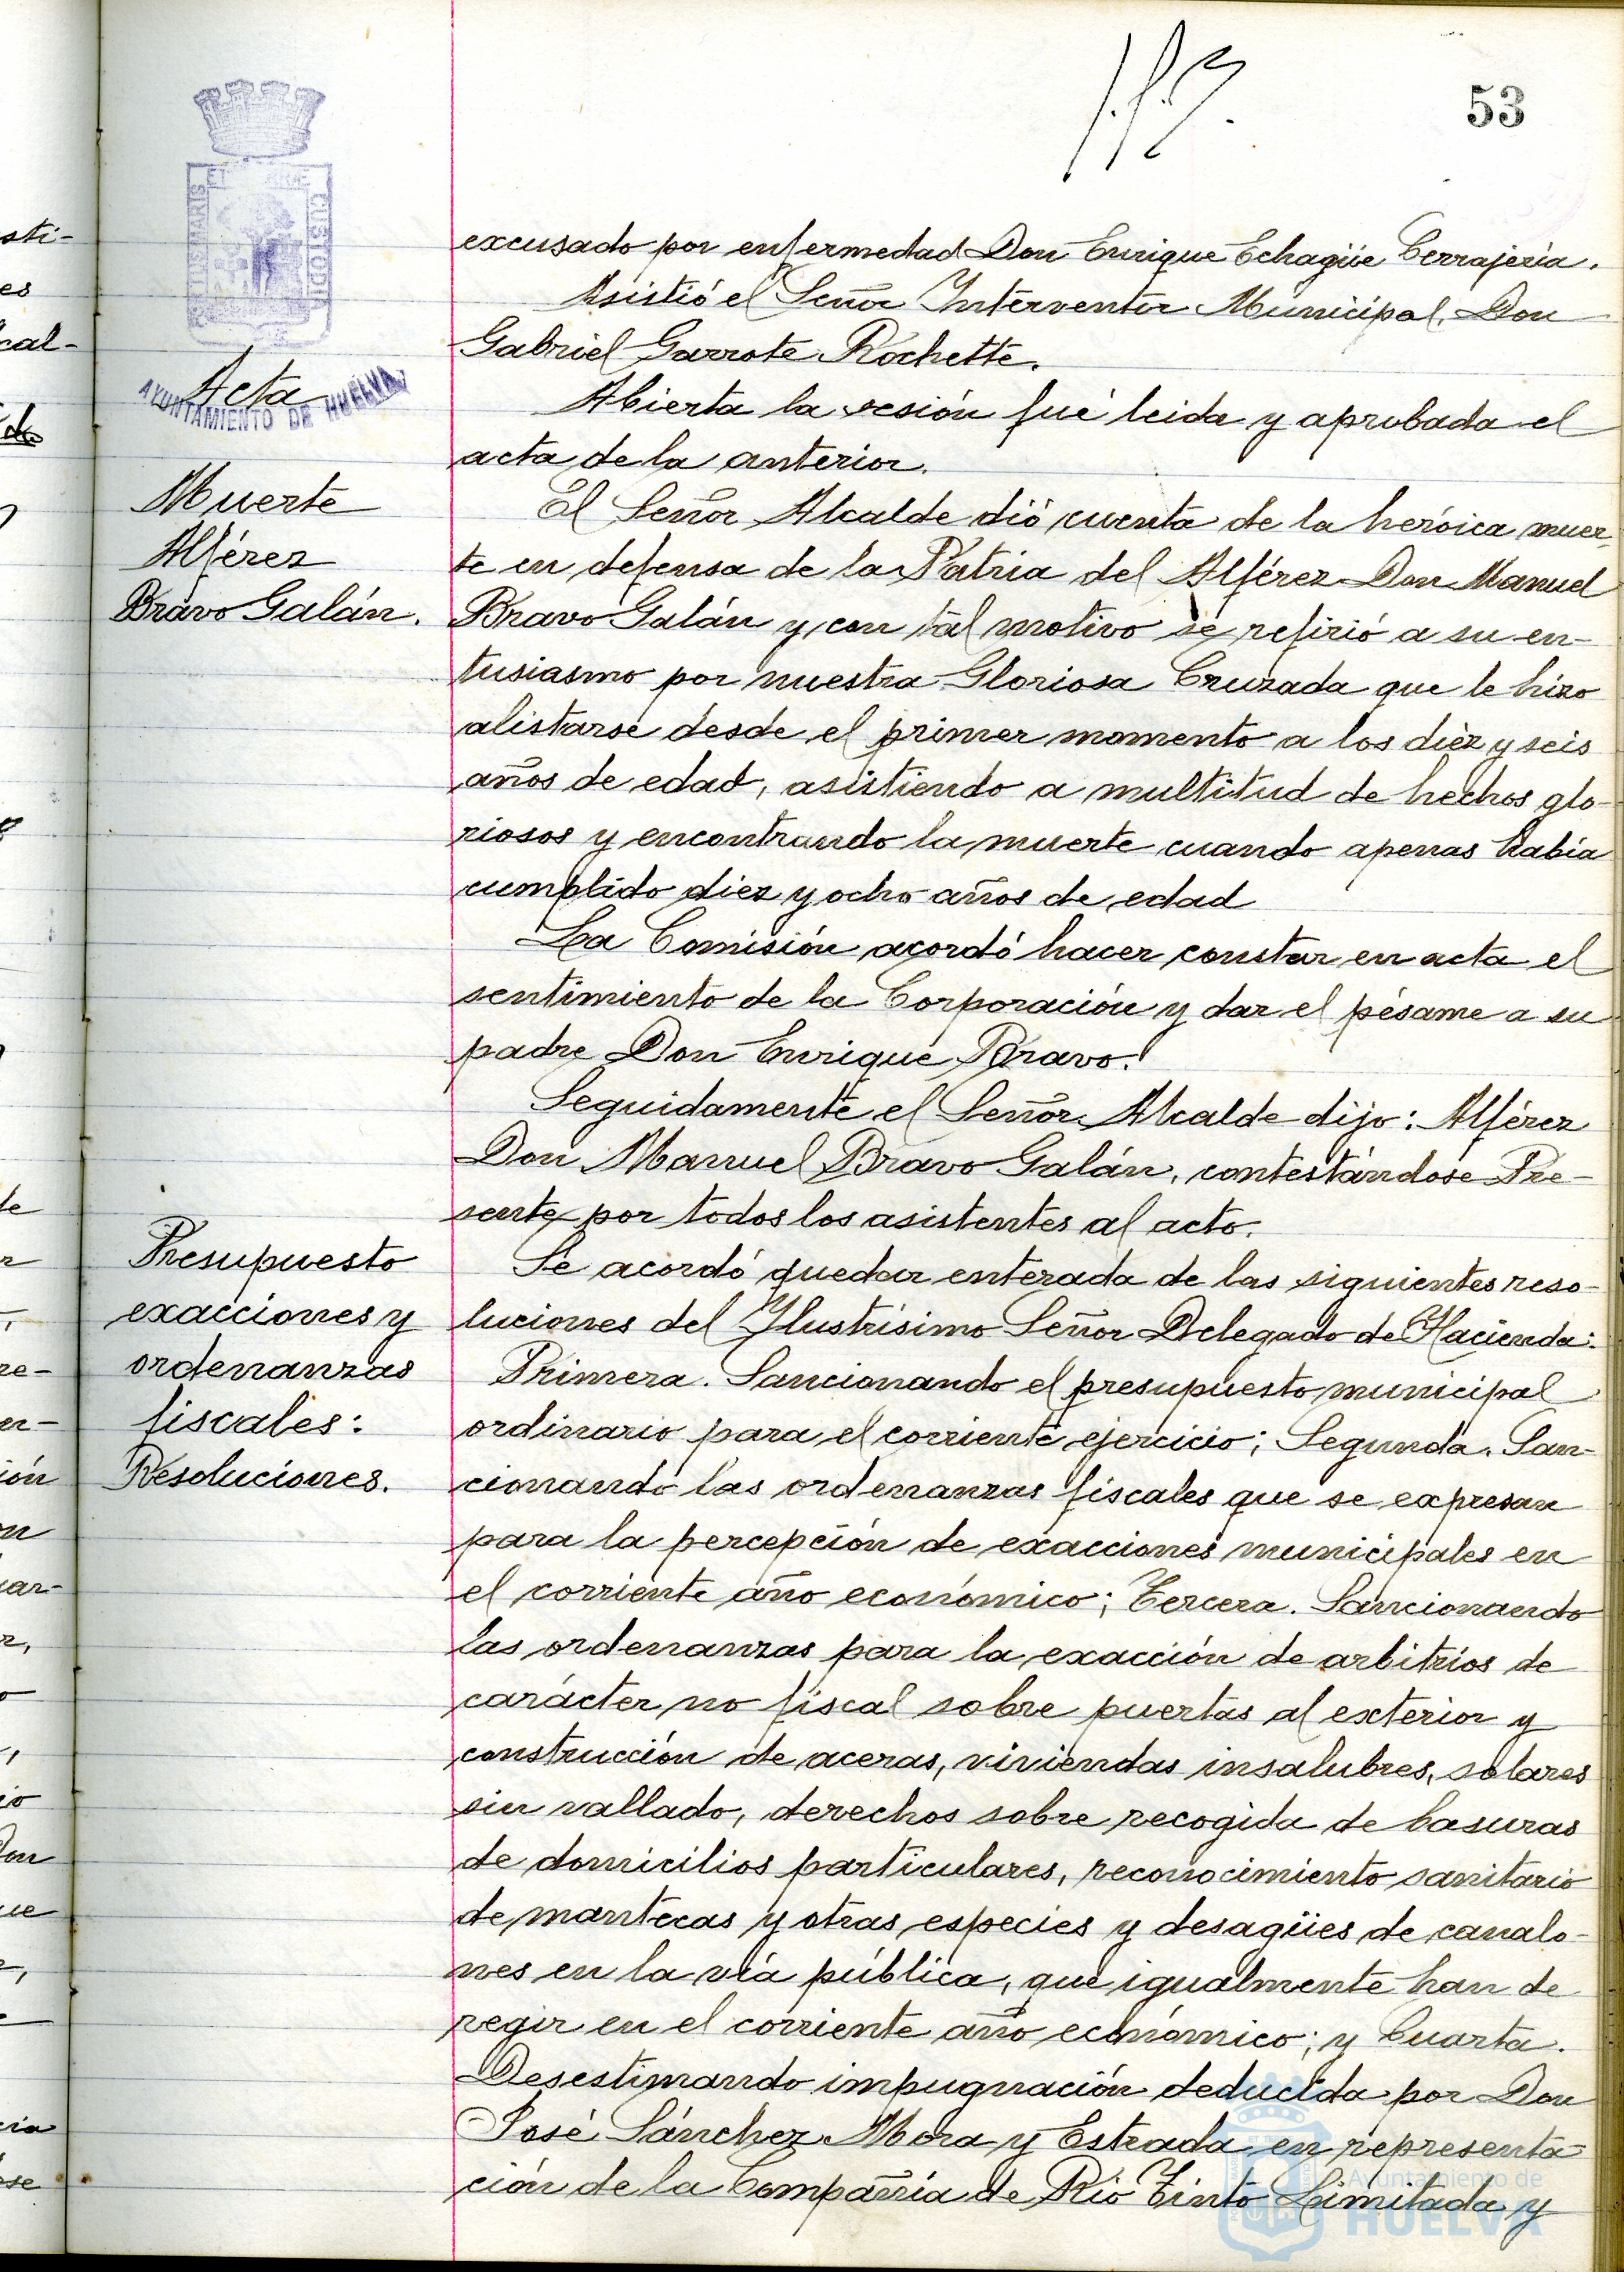 53
excusado por enfermedad Don Enrique Echagüe Cerrajería.
Asistió el Señor Interventor Municipal, Don
Gabriel Garrote Rochette.
Acta
AYUNTAMIENTO DE HUELVA
Abierta la sesión fué leida y aprobada el
acta de la anterior.
Muerte
Alférez
Bravo Galán.
El Señor Alcalde dió cuenta de la heróica muer-
te en defensa de la Patria del Alférez Don Manuel
Bravo Galán y con tal motivo se refirió a su en-
tusiasmo por nuestra Gloriosa Cruzada que le hizo
alistarse desde el primer momento a los diez y seis
años de edad, asistiendo a multitud de hechos glo-
riosos y encontrando la muerte cuando apenas había
cumplido diez y ocho años de edad
La Comisión acordó hacer constar en acta el
sentimiento de la Corporación y dar el pésame a su
padre Don Enrique Bravo.
Seguidamente el Señor Alcalde dijo: Alférez
Don Manuel Bravo Galán, contestándose Pre-
sente por todos los asistentes al acto.
Presupuesto
exacciones y
ordenanzas
fiscales:
Resoluciones.
Se acordó quedar enterada de las siguientes reso-
luciones del Ylustrísimo Señor Delegado de Hacienda:
Primera. Sancionando el presupuesto municipal
ordinario para el corriente ejercicio; Segunda. San-
cionando las ordenanzas fiscales que se expresan
para la percepción de exacciones municipales en
el corriente año económico; Tercera. Sancionando
las ordenanzas para la exacción de arbitrios de
carácter no fiscal sobre puertas al exterior y
construcción de aceras, viviendas insalubres, solares
sin vallado, derechos sobre recogida de basuras
de domicilios particulares, reconocimiento sanitario
de mantecas y otras especies y desagües de canalo-
nes en la vía pública, que igualmente han de
regir en el corriente año económico; y Cuarta.
Desestimando impugnación deducida por Don
José Sánchez Mora y Estrada en representa-
ción de la Compañía de Río Tinto Limitada y
Ayuntamiento de
HUELVA